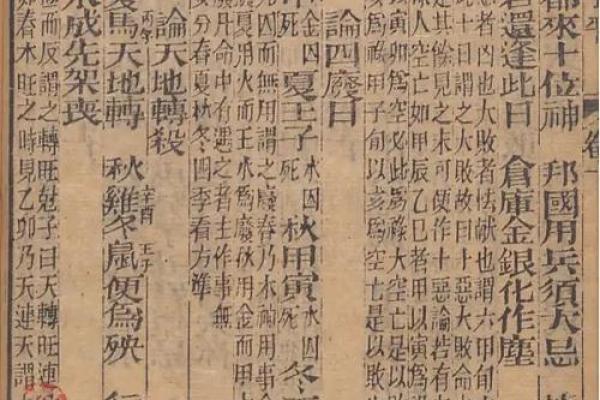 平
卷一
都來十位神 邦國用兵須大忌
還逢此日 倉庫金銀化作塵
者凶也大敗者怯敵也謂六甲旬
十日謂之大敗故曰十惡大敗命
其餘見之未可便作十惡論若有
空亡如甲辰乙巳者甲以寅爲
寅卯爲空必此爲祿大空亡是以敗
祿甲子旬以亥爲空亡是以敗
論四廢日
夏王子 水囚死 秋甲寅 水囚死 冬
囚而無用謂之廢春乃木神用事金
夏用火而王水爲廢秋用金而
廢月命中有遇之者主作事無
春夏秋冬四季看方準
論天地轉殺
夏馬 丙午 天地轉 秋雞 辛酉 冬鼠 壬子 便爲殃
成先架喪
而反謂之轉旺尅子曰天轉旺連
如春木旺之時見乙卯乃天連天謂